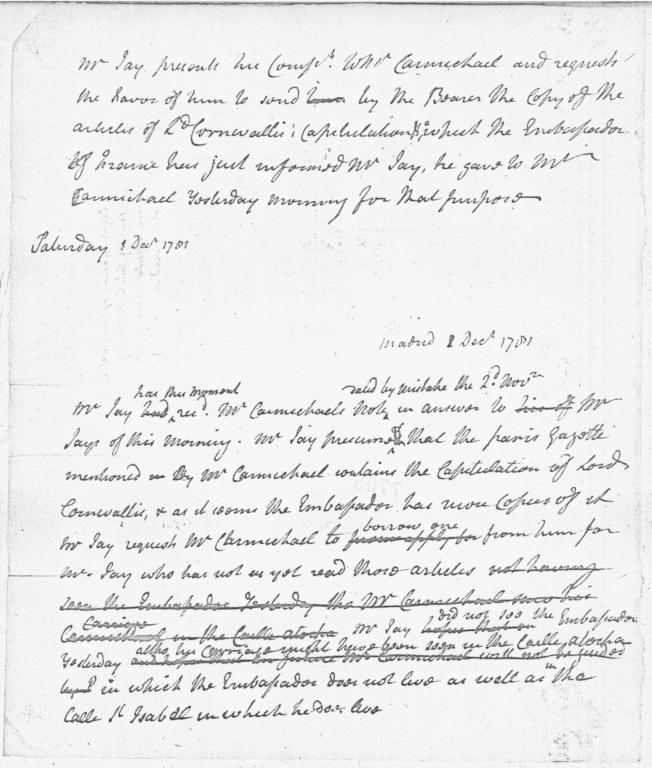 Mr Jay presents his Compts. to Mr Carmichael and requests
the Favor of him to send by the Bearer the Copy of the
articles of Ld. Cornwallis's Capitulation, which the Embassador
of France has just informed Mr Jay, he gave to Mr
Carmichael Yesterday morning for that purpose
Saturday 1 Decr 1781
Madrid 1 Decr 1781
has this moment dated by mistake the 2d. Novr
Mr Jay had recd. Mr Carmichaels Note, in answer to his of Mr
Jays of this Morning. Mr Jay presumes that the paris Gazette
mentioned by Mr Carmichael contains the Capitulation of Lord
Cornwallis, & as it seems the Embassador has more Copies of it
borrow one
Mr Jay requests Mr Carmichael to apply for from him for
Mr. Jay who has not as yet read those articles not having
seen the Embassador Yesterday tho Mr Carmichael saw his
Carriage did not see the Embassador
Carmichael in the Calle atocha Mr Jay hopes that
altho, his Carriage might have been seen in the Calle atocha
Yesterday and hopes that in future Mr Carmichael will not be
in which the Embassador does not live as well as in the
Calle St. Isabel in which he does live